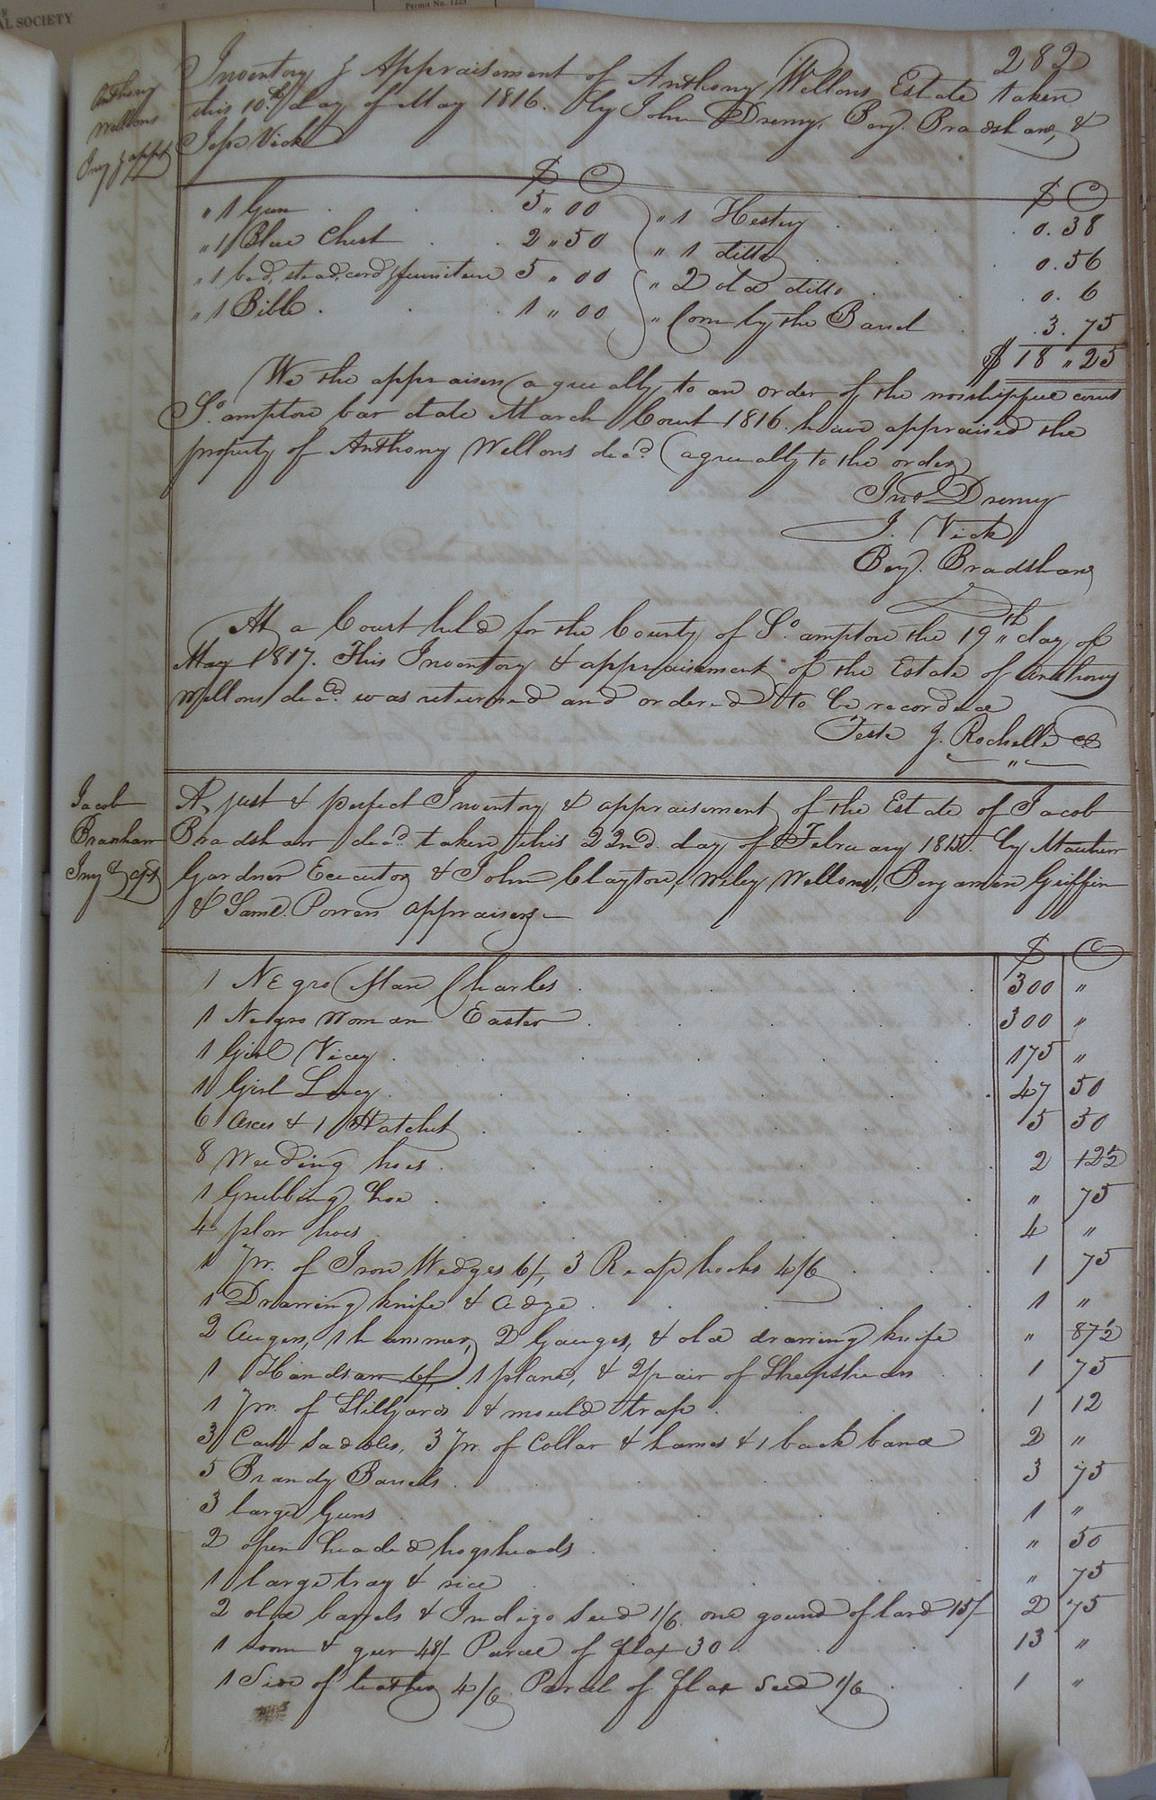 AL SOCIETY
Permit No. 1225
282
Anthony
Wellons
Invy & appt
Inventory & Appraisement of Anthony Wellons Estate taken
this 10th day of May 1816. By John Drewry, Benj. Bradshaw, &
Jesse Vick
$ C
$ C
" 1 Gun 5 " 00
" 1 Blue Chest 2 " 50
" 1 bed, stead, cord & furniture 5 " 00
" 1 Bible 1 " 00
" 1 0. 38
" 1 ditto 0. 56
" 2 old ditto 0. 6
" Corn by the Barrel 3. 75
$ 18 " 25
We the appraisers agreeally to an order of the worshippue court
So. ampton bar date March Court 1816. have appraised the
property of Anthony Wellons decd (agreeally to the order)
Jno Drewry
J. Vick
Benj. Bradshaw
At a Court held for the County of So. ampton the 19th day of
May 1817. This Inventory & appraisement of the Estate of Anthony
Wellons decd. was returned and ordered to be recorded
Teste J. Rochelle
Jacob
Bradshaw
Invy & apt
A just & perfect Inventory & appraisement of the Estate of Jacob
Bradshaw decd. taken this 22nd day of Februay 1815. by Mathew
Gardner Executor & John Clayton, Wiley Wellons, Benjamin Griffin
& Saml. Powers appraisers
$ C
1 Negro Man Charles 300 "
1 Negro Woman Easter 300 "
1 Girl Vicey 175 "
1 Girl Lucy 47 50
6 axes & 1 Hatchet 5 50
8 Weeding hoes 2 12½
1 Grubbing hoe " 75
4 plow hoes 4 "
1 pr. of Iron Wedges 6/, 3 Reap hooks 4/6 1 75
1 Drawing knife & adze 1 "
2 Augers, 1 hammer, 2 Gauges, & old drawing knife " 87½
1 Handsaw 6/, 1 plane, & 2 pair of Sheepshears 1 75
1 pr. of Stillyards & mould trap 1 12
3 Cart saddles, 3 pr. of Collar & hames & 1 back band 2 "
5 Brandy Barrels 3 75
3 large Gums 1 "
2 open headed hogsheads " 50
1 large tray & " 75
2 old barrels & Indigo Seed 1/6 one gound of lard 15/ 2 75
1 Loom & gear 48/ Parcel of flax 30 13 "
1 Side of leather 4/6 Parcel of flax Seed 1/6 1 "